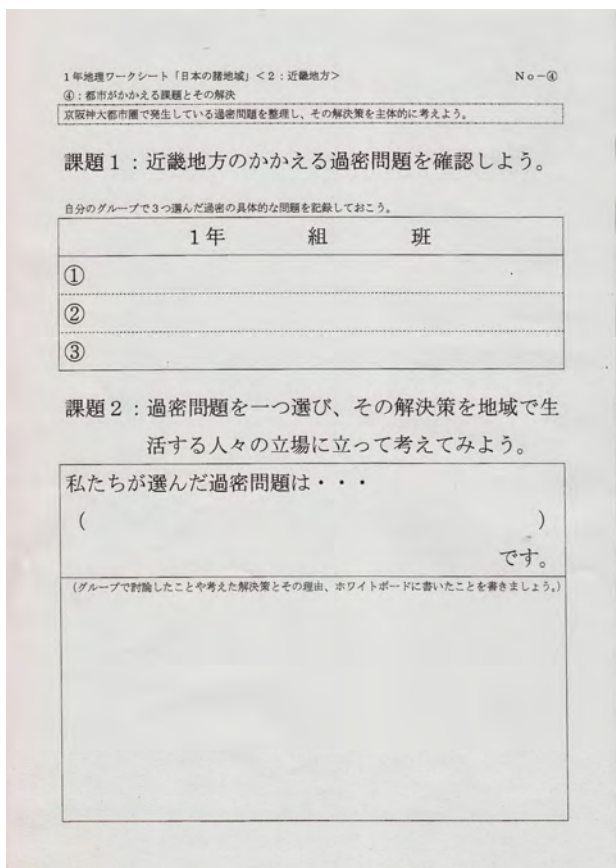 1年地理ワークシート「日本の諸地域」＜2：近畿地方＞ No－④
④：都市がかかえる課題とその解決
京阪神大都市圏で発生している過密問題を整理し、その解決策を主体的に考えよう。
課題1：近畿地方のかかえる過密問題を確認しよう。
自分のグループで3つ選んだ過密の具体的な問題を記録しておこう。
1年 組 班
①
②
③
課題2：過密問題を一つ選び、その解決策を地域で生
活する人々の立場に立って考えてみよう。
私たちが選んだ過密問題は・・・
（ ）
です。
（グループで討論したことや考えた解決策とその理由、ホワイトボードに書いたことを書きましょう。）